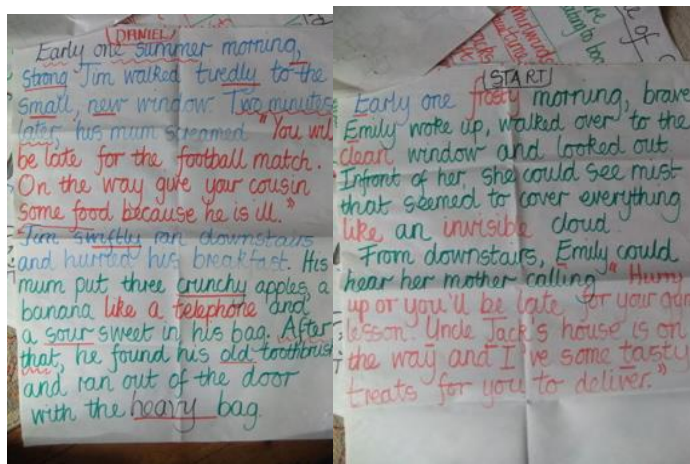 (DANIEL)
Early one summer morning,
strong Jim walked tiredly to the
small, new window. Two minutes
later, his mum screamed "You will
be late for the football match.
On the way give your cousin
some food because he is ill."
Jim swiftly ran downstairs
and hurried his breakfast. His
mum put three crunchy apples, a
banana like a telephone and
a sour sweet in his bag. After
that, he found his old toothbrush
and ran out of the door
with the heavy bag.
(START)
Early one frosty morning, brave
Emily woke up, walked over to the
clean window and looked out.
Infront of her, she could see mist
that seemed to cover everything
like an invisible cloud.
From downstairs, Emily could
hear her mother calling "Hurry
up or you'll be late for your
lesson. Uncle Jack's house is on
the way and I've some tasty
treats for you to deliver."